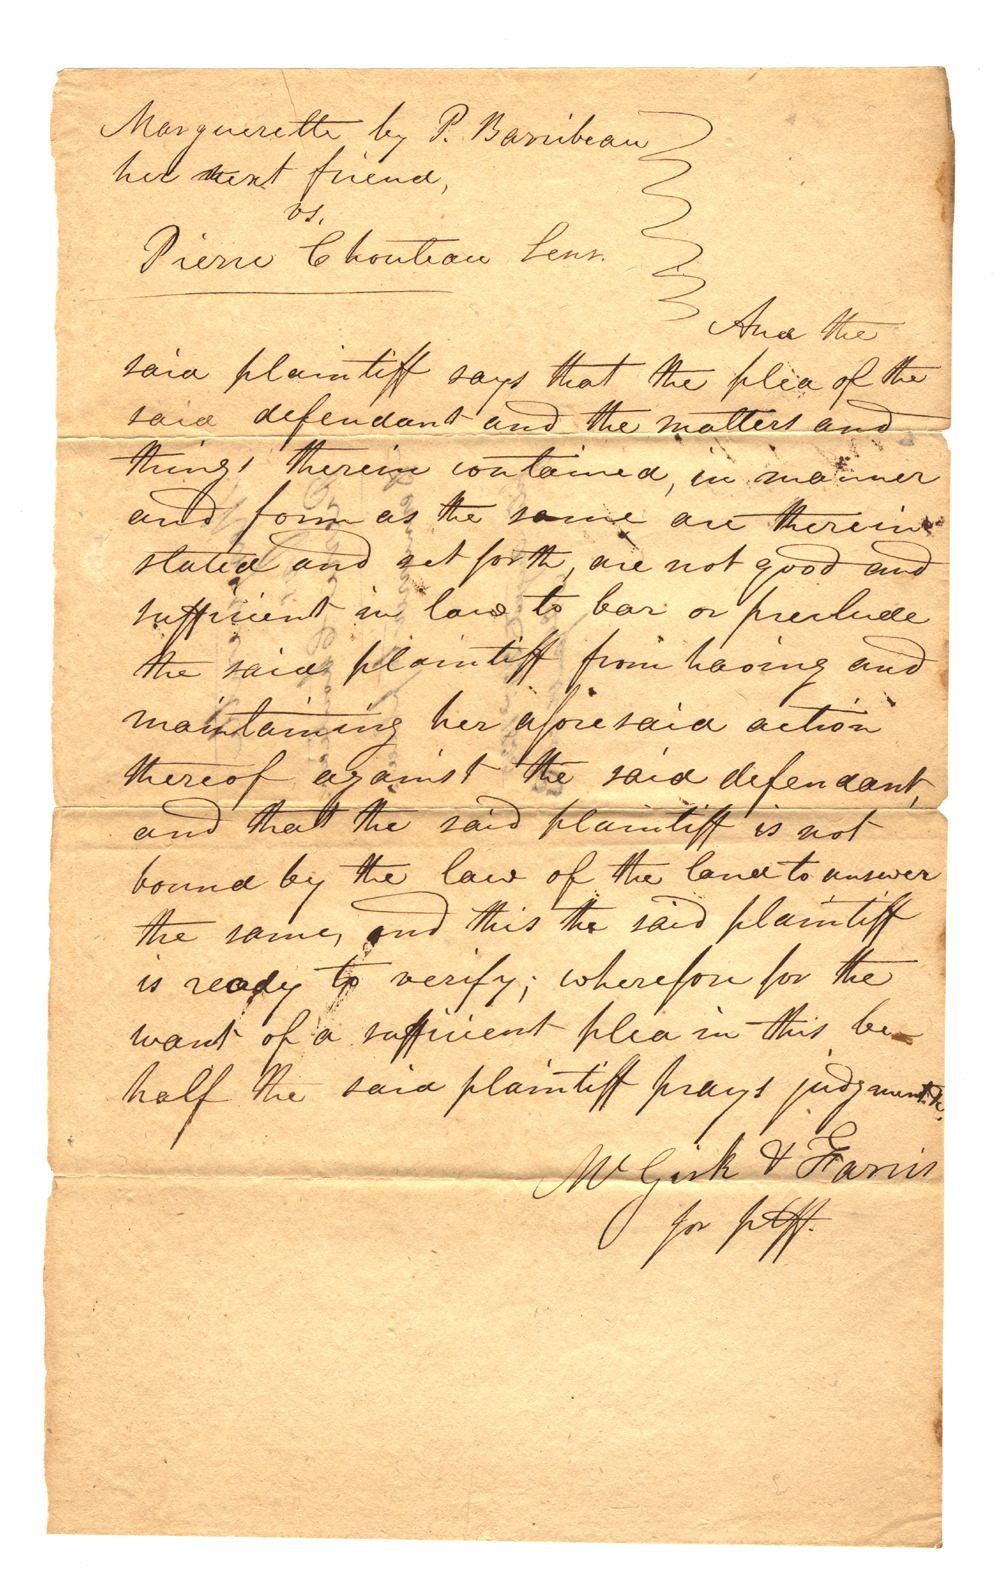 Marguerette by P. Barribeau
her next friend,
vs.
Pierre Chouteau Senr.
And the
said plaintiff says that the plea of the
said defendant and the matters and
things therein contained, in manner
and form as the same are therein
stated and set forth, are not good and
sufficient in law to bar or preclude
the said plaintiff from having and
maintaining her aforesaid action
thereof against the said defendant,
and that the said plaintiff is not
bound by the law of the land to answer
the same, and this the said plaintiff
is ready to verify; wherefore for the
want of a sufficient plea in this be-
half the said plaintiff prays judgment &c.
McGirk & Farris
for pltff.